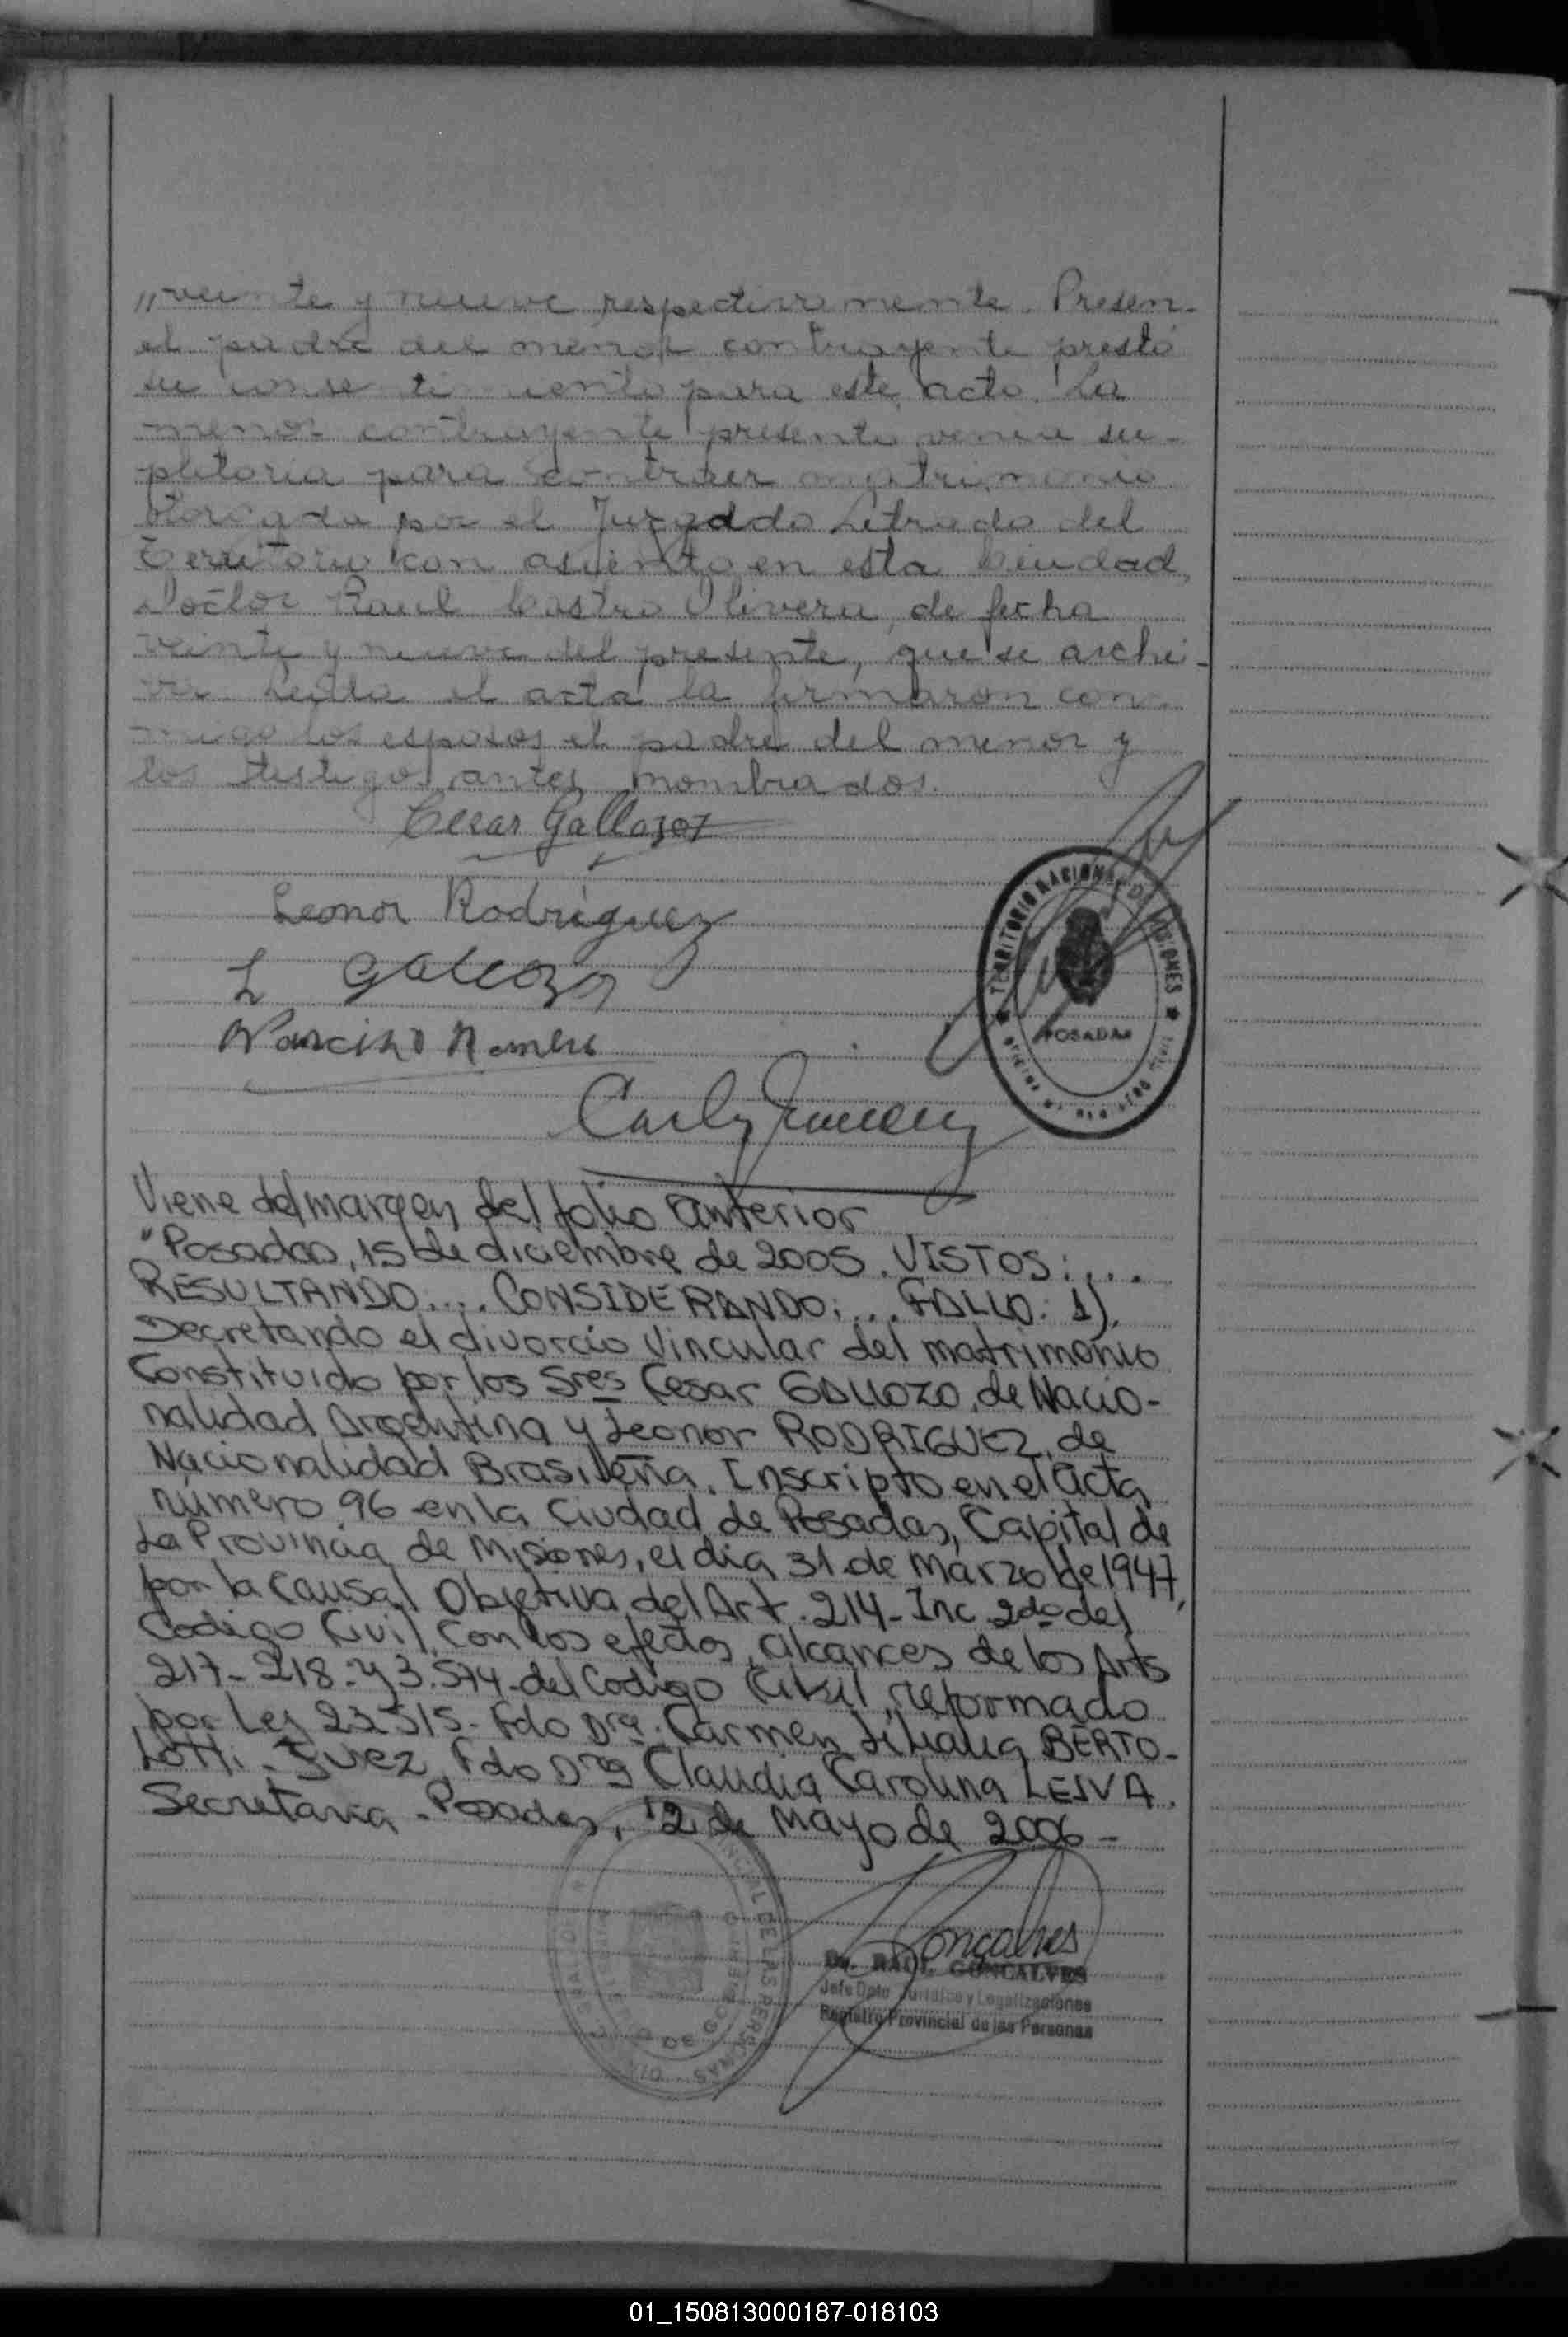 „veinte y nueve respectivamente. Presen-
el padre del menor contrayente prestó
su consentimiento para este acto. La
menor contrayente presenta venia su-
pletoria para contraer matrimonio
otorgada por el Juzgado Letrado del
Territorio con asiento en esta Ciudad,
Doctor Raul Castro Olivera, de fecha
veinte y nueve del presente, que se archi-
va. Leída el acta la firmaron con-
migo los esposos el padre del menor y
los testigos antes nombrados.
Cesar Gallozo
Leonor Rodriguez
L Gallozo
Narciso Romero
TERRITORIO NACIONAL DE MISIONES
POSADAS
OFICINA DE REGISTRO CIVIL
Viene del margen del folio anterior
"Posadas, 15 de diciembre de 2005. VISTOS:....
RESULTANDO.... CONSIDERANDO:... FALLO: 1).
Decretando el divorcio Vincular del matrimonio
Constituido por los Sres Cesar GALLOZO, de Nacio-
nalidad Argentina y Leonor RODRIGUEZ, de
Nacionalidad Brasileña. Inscripto en el acta
número 96 en la Ciudad de Posadas, Capital de
La Provincia de Misiones, el dia 31 de Marzo de 1947,
por la Causal Objetiva del Art. 214- Inc 2do del
Codigo Civil, con los efectos, alcances de los Arts
217- 218- y 3.574- del Codigo Civil, reformado
por Ley 23515- Fdo Dra. Carmen Liliana BERTO-
Lotti - Juez. Fdo Dra Claudia Carolina LEIVA.
Secretaria - Posadas, 12 de Mayo de 2006 -
Goncalves
Dr. RAUL GONCALVES
Jefe Dpto Jurídico y Legalizaciones
Registro Provincial de las Personas
01_150813000187-018103